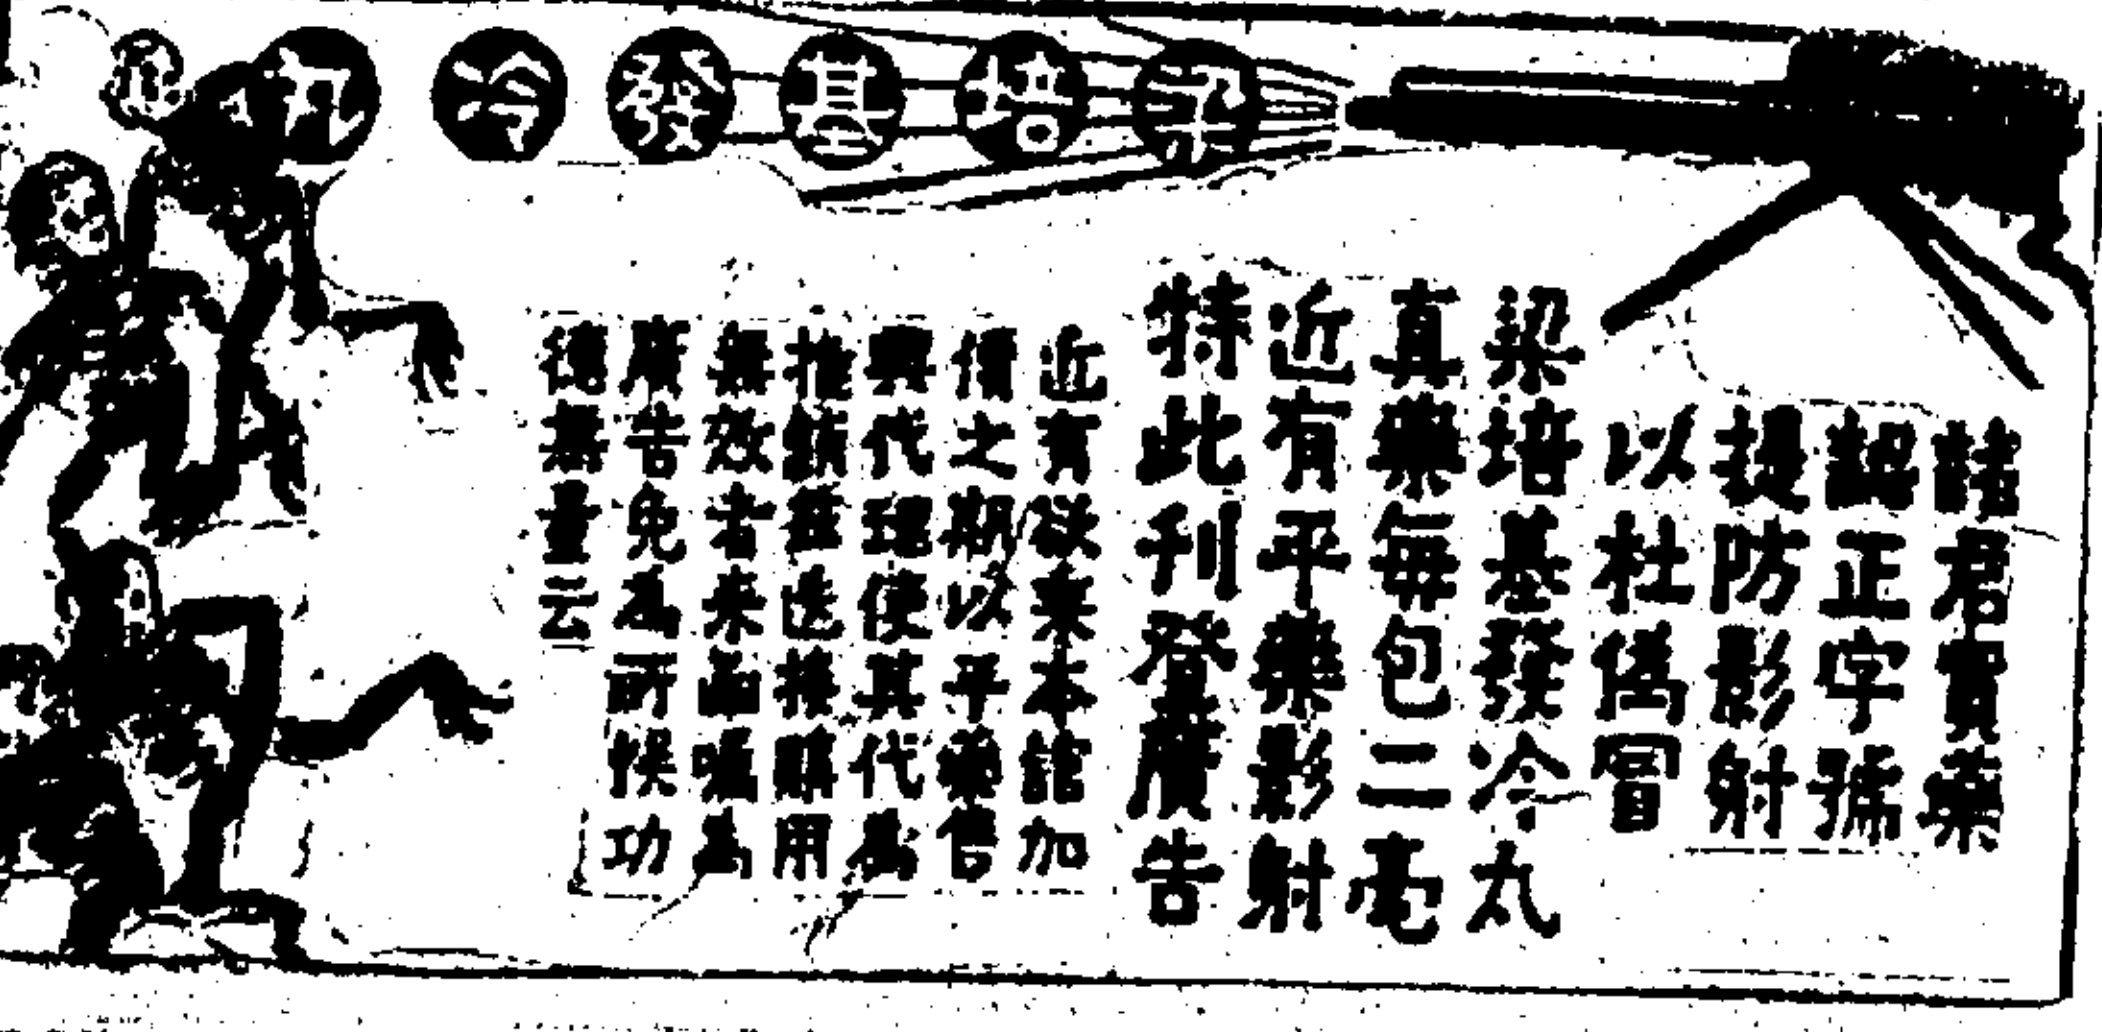 梁培基發冷丸
諸君買藥
認正字號
提防影射
以杜偽冒
梁培基發冷丸
真藥每包二毫
近有平藥影射
特此刊登廣告
近有欲乘本舘加
價之期以平藥售
與代理使其代為
推銷茲迭接購用
無效者來函囑為
廣告免為所悞功
德無量云